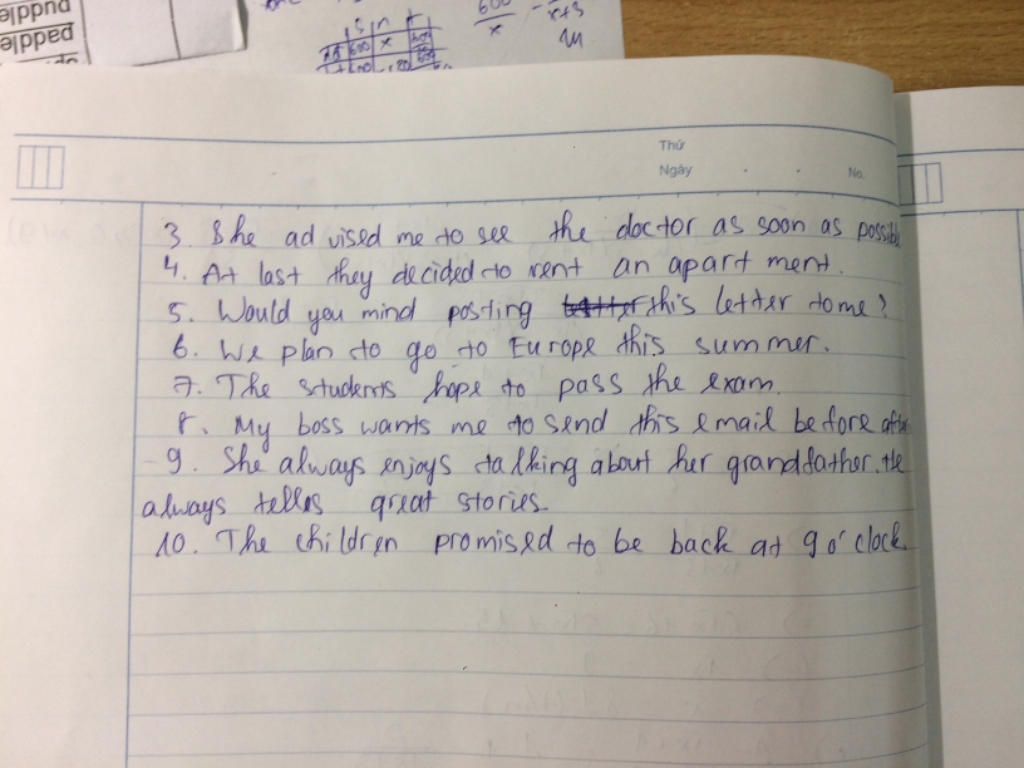 puddle
paddle
600
x
x+3
Thứ
Ngày . . No.
3. She advised me to see the doctor as soon as possible
4. At last they decided to rent an apartment.
5. Would you mind posting this letter to me?
6. We plan to go to Europe this summer.
7. The students hope to pass the exam.
8. My boss wants me to send this email before
9. She always enjoys talking about her grandfather. He
always tells great stories.
10. The children promised to be back at 9 o'clock.